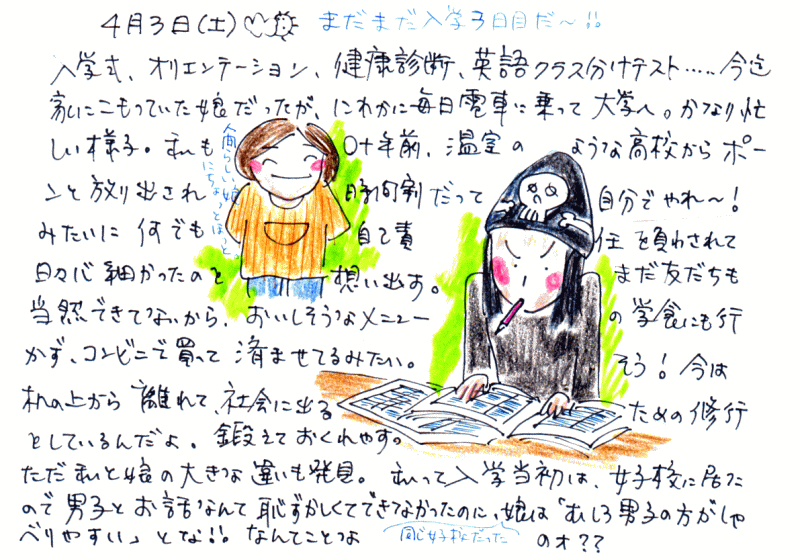 4月3日(土) まだまだ入学3日目だ〜!!
入学式、オリエンテーション、健康診断、英語クラス分けテスト……今迄
家にこもっていた娘だったが、にわかに毎日電車に乗って大学へ。かなり忙
しい様子。私も〇十年前、温室のような高校からポー
ンと放り出され時間割だって自分でやれ〜!
みたいに何でも自己責任を負わされて
日々心細かったのと想い出す。まだ友だちも
当然できてないから、おいしそうなメニューの学食にも行
かず、コンビニで買って済ませてるみたい。そう!今は
机の上から離れて、社会に出るための修行
としているんだよ。鍛えておくれやす。
ただ私と娘の大きな違いも発見。私って入学当初は、女子校に居た
ので男子とお話なんて恥ずかしくてできなかったのに、娘は「むしろ男子の方がしゃ
べりやすい」とな!!なんてことつよ 同じ女子校だった のオ??
らしい娘にちょっとほっと。